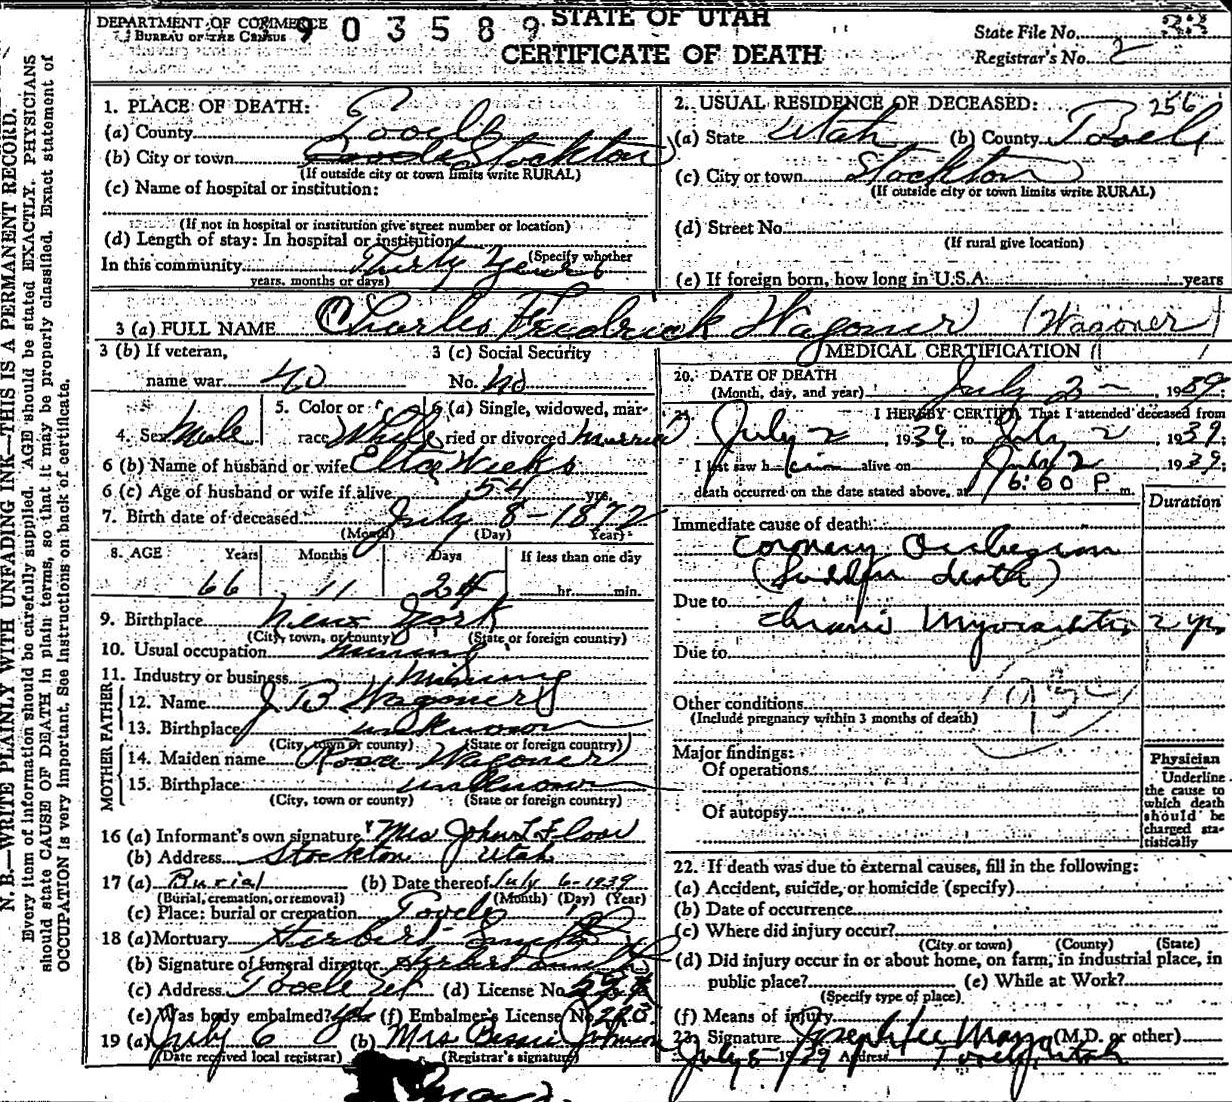 DEPARTMENT OF COMMERCE
BUREAU OF THE CENSUS
903589
STATE OF UTAH
CERTIFICATE OF DEATH
State File No. 33
Registrar's No. 2
N. B.—WRITE PLAINLY WITH UNFADING INK—THIS IS A PERMANENT RECORD.
Every item of information should be carefully supplied. AGE should be stated EXACTLY. PHYSICIANS
should state CAUSE OF DEATH in plain terms, so that it may be properly classified. Exact statement of
OCCUPATION is very important. See instructions on back of certificate.
1. PLACE OF DEATH:
(a) County Tooele
(b) City or town Tooele Stockton
(If outside city or town limits write RURAL)
(c) Name of hospital or institution:
(If not in hospital or institution give street number or location)
(d) Length of stay: In hospital or institution
(Specify whether
In this community Thirty Years
years, months or days)
2. USUAL RESIDENCE OF DECEASED: 256
(a) State Utah (b) County Tooele
(c) City or town Stockton
(If outside city or town limits write RURAL)
(d) Street No.
(If rural give location)
(e) If foreign born, how long in U.S.A. years
3 (a) FULL NAME Charles Fredrick Wagoner (Wagoner)
3 (b) If veteran,
name war no
3 (c) Social Security
No. no
4. Sex Male
5. Color or
race White
6 (a) Single, widowed, mar-
ried or divorced married
6 (b) Name of husband or wife Etta Weeks
6 (c) Age of husband or wife if alive 54 yrs.
7. Birth date of deceased July 8-1872
(Month) (Day) (Year)
8. AGE Years Months Days If less than one day
66 11 24 hr. min.
9. Birthplace New York
(City, town, or county) (State or foreign country)
10. Usual occupation mining
11. Industry or business mining
FATHER
12. Name J B Wagoner
13. Birthplace unknown
(City, town or county) (State or foreign country)
MOTHER
14. Maiden name Rosa Wagoner
15. Birthplace unknown
(City, town or county) (State or foreign country)
16 (a) Informant's own signature Mrs John L Floor
(b) Address Stockton Utah
17 (a) Burial (b) Date thereof July 6-1939
(Burial, cremation, or removal) (Month) (Day) (Year)
(c) Place: burial or cremation Tooele
18 (a) Mortuary Herbert Smith
(b) Signature of funeral director Herbert Smith
(c) Address Tooele Ut (d) License No.
(e) Was body embalmed? yes (f) Embalmer's License No.
19 (a) July 6 (b) Mrs. Bessie Johnson
(Date received local registrar) (Registrar's signature)
MEDICAL CERTIFICATION
20. DATE OF DEATH
(Month, day, and year) July 2 - 1939
21. I HEREBY CERTIFY, That I attended deceased from
July 2 1939, to July 2, 1939;
I last saw him alive on July 2 1939;
death occurred on the date stated above, at 6:00 P m.
Duration
Immediate cause of death
Coronary Occlusion
(Sudden death)
Due to
Chronic Myocarditis 2 yrs
Due to
Other conditions
(Include pregnancy within 3 months of death)
Major findings:
Of operations
Of autopsy
Physician
Underline
the cause to
which death
should be
charged sta-
tistically
22. If death was due to external causes, fill in the following:
(a) Accident, suicide, or homicide (specify)
(b) Date of occurrence
(c) Where did injury occur?
(City or town) (County) (State)
(d) Did injury occur in or about home, on farm, in industrial place, in
public place? (e) While at Work?
(Specify type of place)
(f) Means of injury
23. Signature Joseph Lee (M.D. or other)
July 5 1939 Address Tooele, Utah